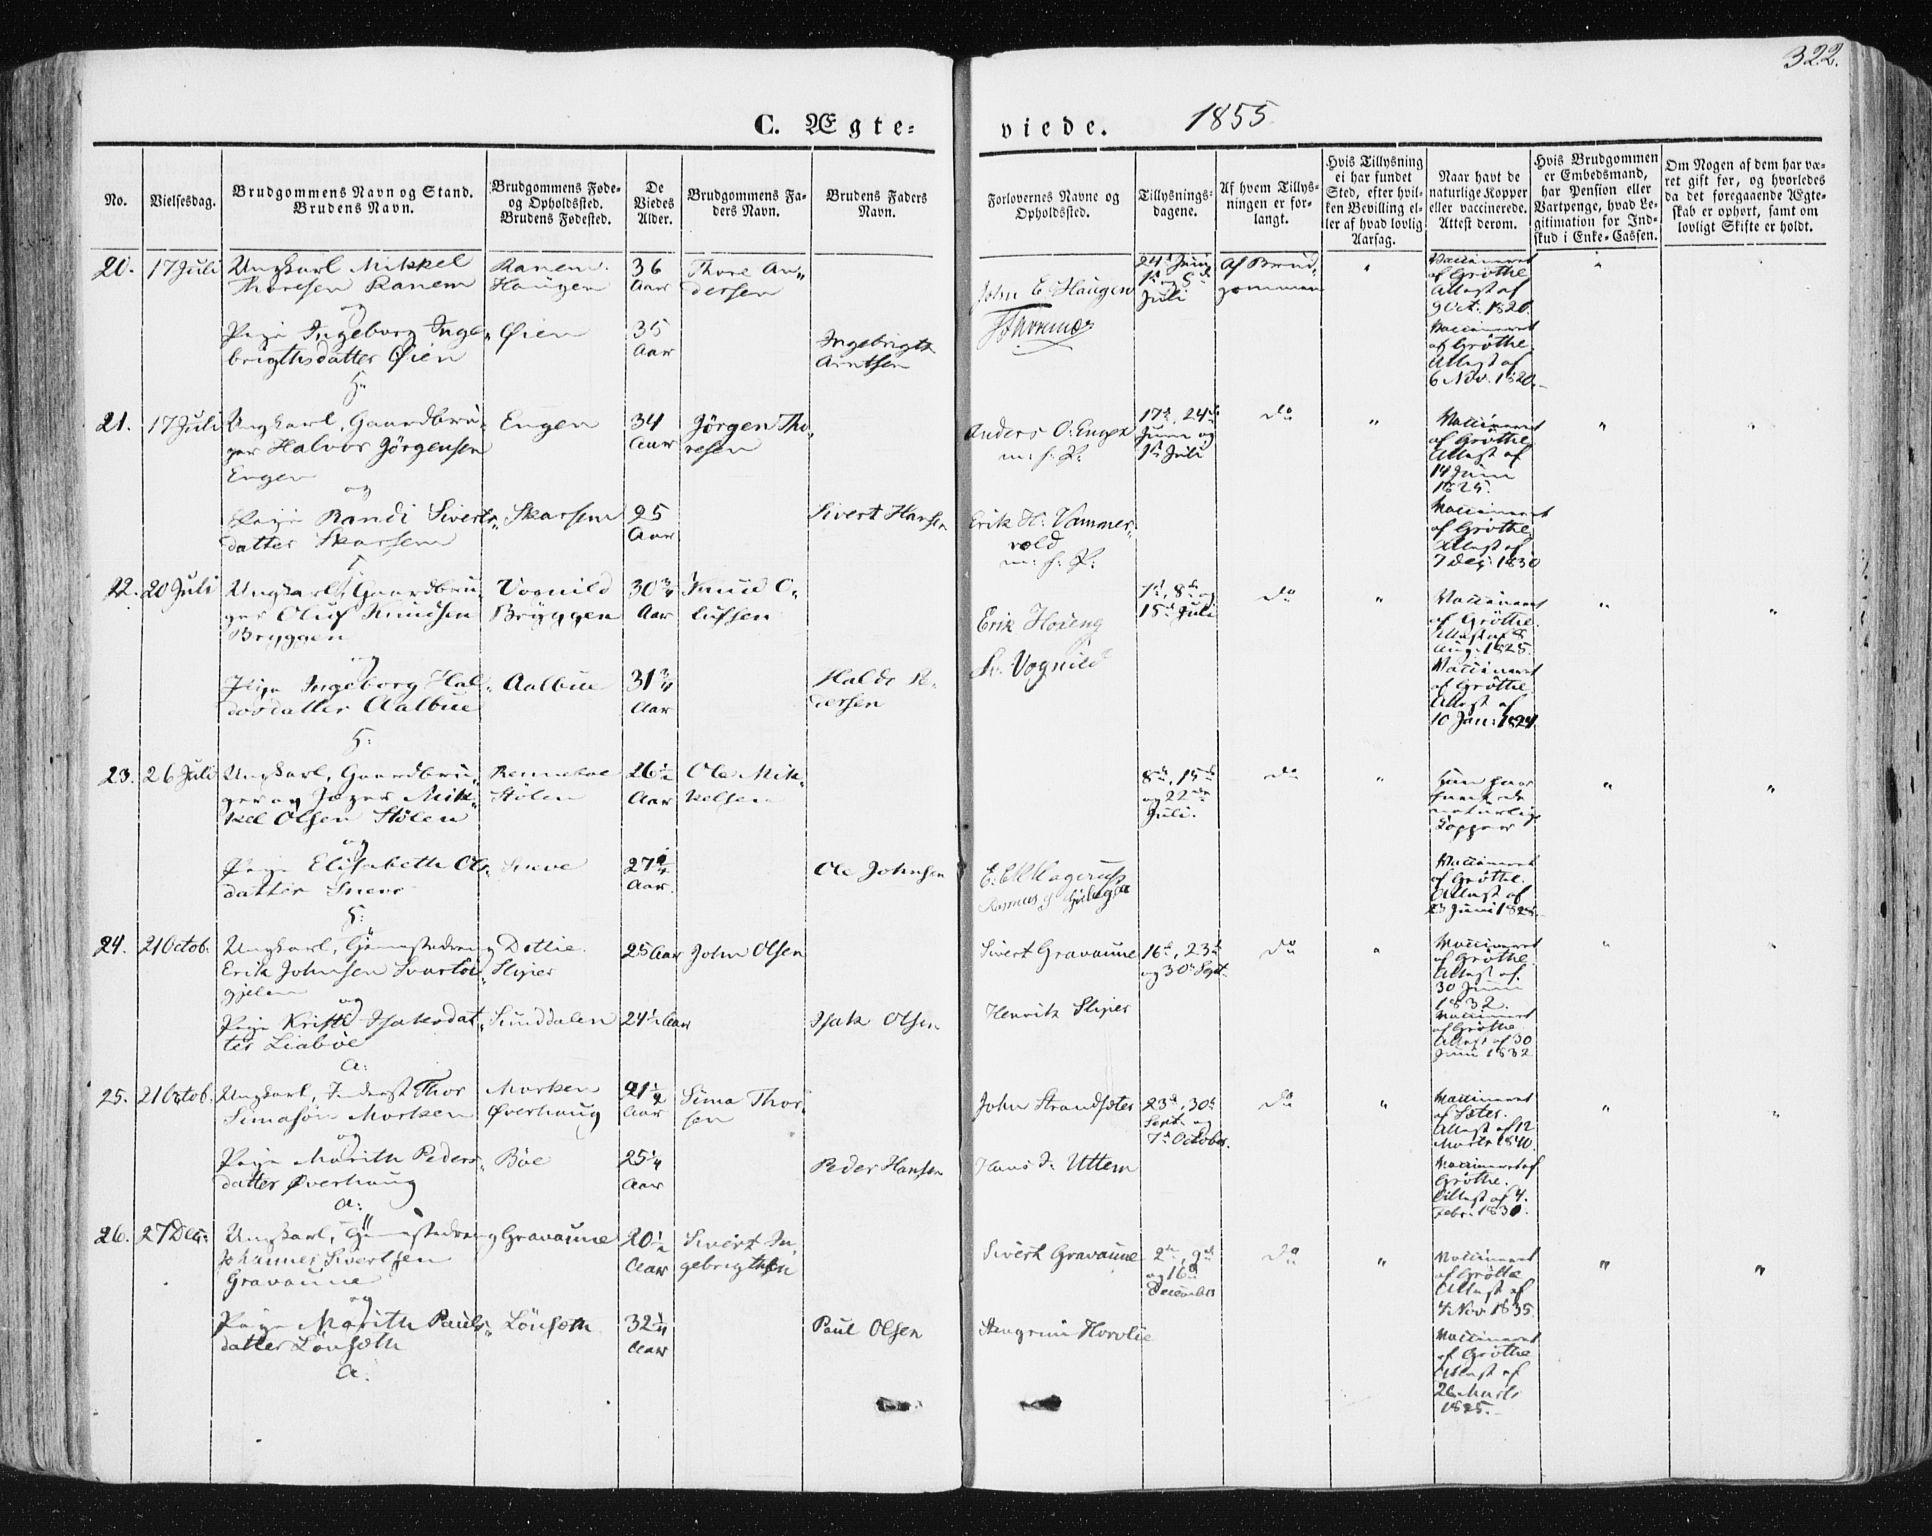 322.
C. Ægte=
viede. 1855
No.
Vielsesdag.
Brudgommens Navn og Stand.
Brudens Navn.
Brudgommens Føde-
og Opholdssted.
Brudens Fødested.
De
Viedes
Alder.
Brudgommens Fa-
ders Navn.
Brudens Faders
Navn.
Forlovernes Navne og
Opholdssted.
Tillysnings-
dagene.
Af hvem Tillys-
ningen er for-
langt.
Hvis Tillysning
ei har fundet
Sted, efter hvil-
ken Bevilling el-
ler af hvad lovlig
Aarsag.
Naar havt de
naturlige Kopper
eller vaccinerede.
Attest derom.
Hvis Brudgommen
er Embedsmand,
har Pension eller
Vartpenge, hvad Le-
gitimation for Ind-
skud i Enke-Cassen.
Om Nogen af dem har væ-
ret gift før, og hvorledes
da det foregaaende Ægte-
skab er ophørt, samt om
lovligt Skifte er holdt.
20.
17 Juli
Ungkarl Mikkel
Thoresen Ranem
og
Pige Ingeborg Inge-
brigtsdatter Øien
Ranem
Haugen
Øien
36
Aar
35
Aar
Thore An-
dersen
Ingebrigt
Arntsen
John E. Haugen
24de Juni
1ste og 8de
Juli
Af Brud-
gommen
"
Vaccineret
af Grøthe
Attest af
9 Oct. 1820.
Vaccineret
af Grøthe
Attest af
6 Nov. 1820.
21.
17 Juli
Ungkarl, Gaardbru-
ger Halvor Jørgensen
Engen
og
Pige Randi Siverts-
datter Skarsem
Engen
Skarsem
34
Aar
25
Aar
Jørgen Tho-
resen
Sivert Hansen
Anders O. Engen
m: f: P:
Erik H. Vammer-
vold
m: f: P:
17de, 24de
Juni og
1ste Juli
do
"
Vaccineret
af Grøthe
Attest af
14 Juni
1825.
Vaccineret
af Grøthe
Attest af
7 Dec. 1830
22.
20 Juli
Ungkarl, Gaardbru-
ger Oluf Knudsen
Bryggen
og
Pige Ingeborg Hal-
dosdatter Aalbue
H:
Vognild
Bryggen
Aalbue
30 3/4
Aar
31 3/4
Aar
Knud O-
lufsen
Haldo Pe-
dersen
Erik Hoxeng
Sr. Vognild
1ste, 8de og
15de Juli
do
"
Vaccineret
af Grøthe.
Attest af 8
Aug. 1825.
Vaccineret
af Grøthe
Attest af
10 Jan. 1824
23.
26 Juli
Ungkarl, Gaardbru-
ger og Jæger Mik-
kel Olsen Stølen
og
Pige Elisabeth Ols-
datter Sneve
H:
Stølen
Sneve
26 1/2
Aar
27 1/2
Aar.
Ole Mik-
kelsen
Ole Johnsen
Rasmus
8de, 15de
og 22de
Juli.
do
"
naturlige
Kopper
Vaccineret
af Grøthe.
Attest af
23 Juni 1828.
24.
2 Octob.
Erik Johnsen Svartøu-
gjelen
og
Pige Kristi Isaksdat-
ter Liabøe
A:
Slipier
Sunddalen
25 Aar
24 1/2 Aar
John Olsen
Isak Olsen
Sivert Gravaune
Henrik Slipier
16de, 23de
og 30de Sept.
do
"
Vaccineret
af Grøthe.
Attest af
30 Juni
1832.
Vaccineret
af Grøthe
Attest af 30
Juni 1832
25.
21 Octob.
Ungkarl, Inderst Thor
Simasøn Morken
og
Pige Marith Peders-
datter Øverhaug
A:
Morken
Øverhaug
Bøe
21 1/2
Aar
25 1/4
Aar
Sima Thor-
sen
Peder Hansen
John Strandsæter
Hans J. Uttem
23de, 30de
Sept. og
7de October.
do
"
Vaccineret
af Sæter.
Attest af 12
Marts 1840.
Vaccineret af
Grøthe.
Attest af 4.
Febr. 1830.
26.
27 Dec.
Johannes Sivertsen
Gravaune
og
Pige Marith Pauls-
datter Lönsæth
A:
Gravaune
Lönsæth
20 1/2
Aar
32 1/4
Aar
Sivert In-
gebrigtsen
Paul Olsen
Sivert Gravaune
Stengrim Horvlie
2de, 9de
og 16de
December
do
"
Vaccineret
af Grøthe
Attest af
4 Nov 1835.
Vaccineret
af Grøthe
Attest af
26 Marts
1825.